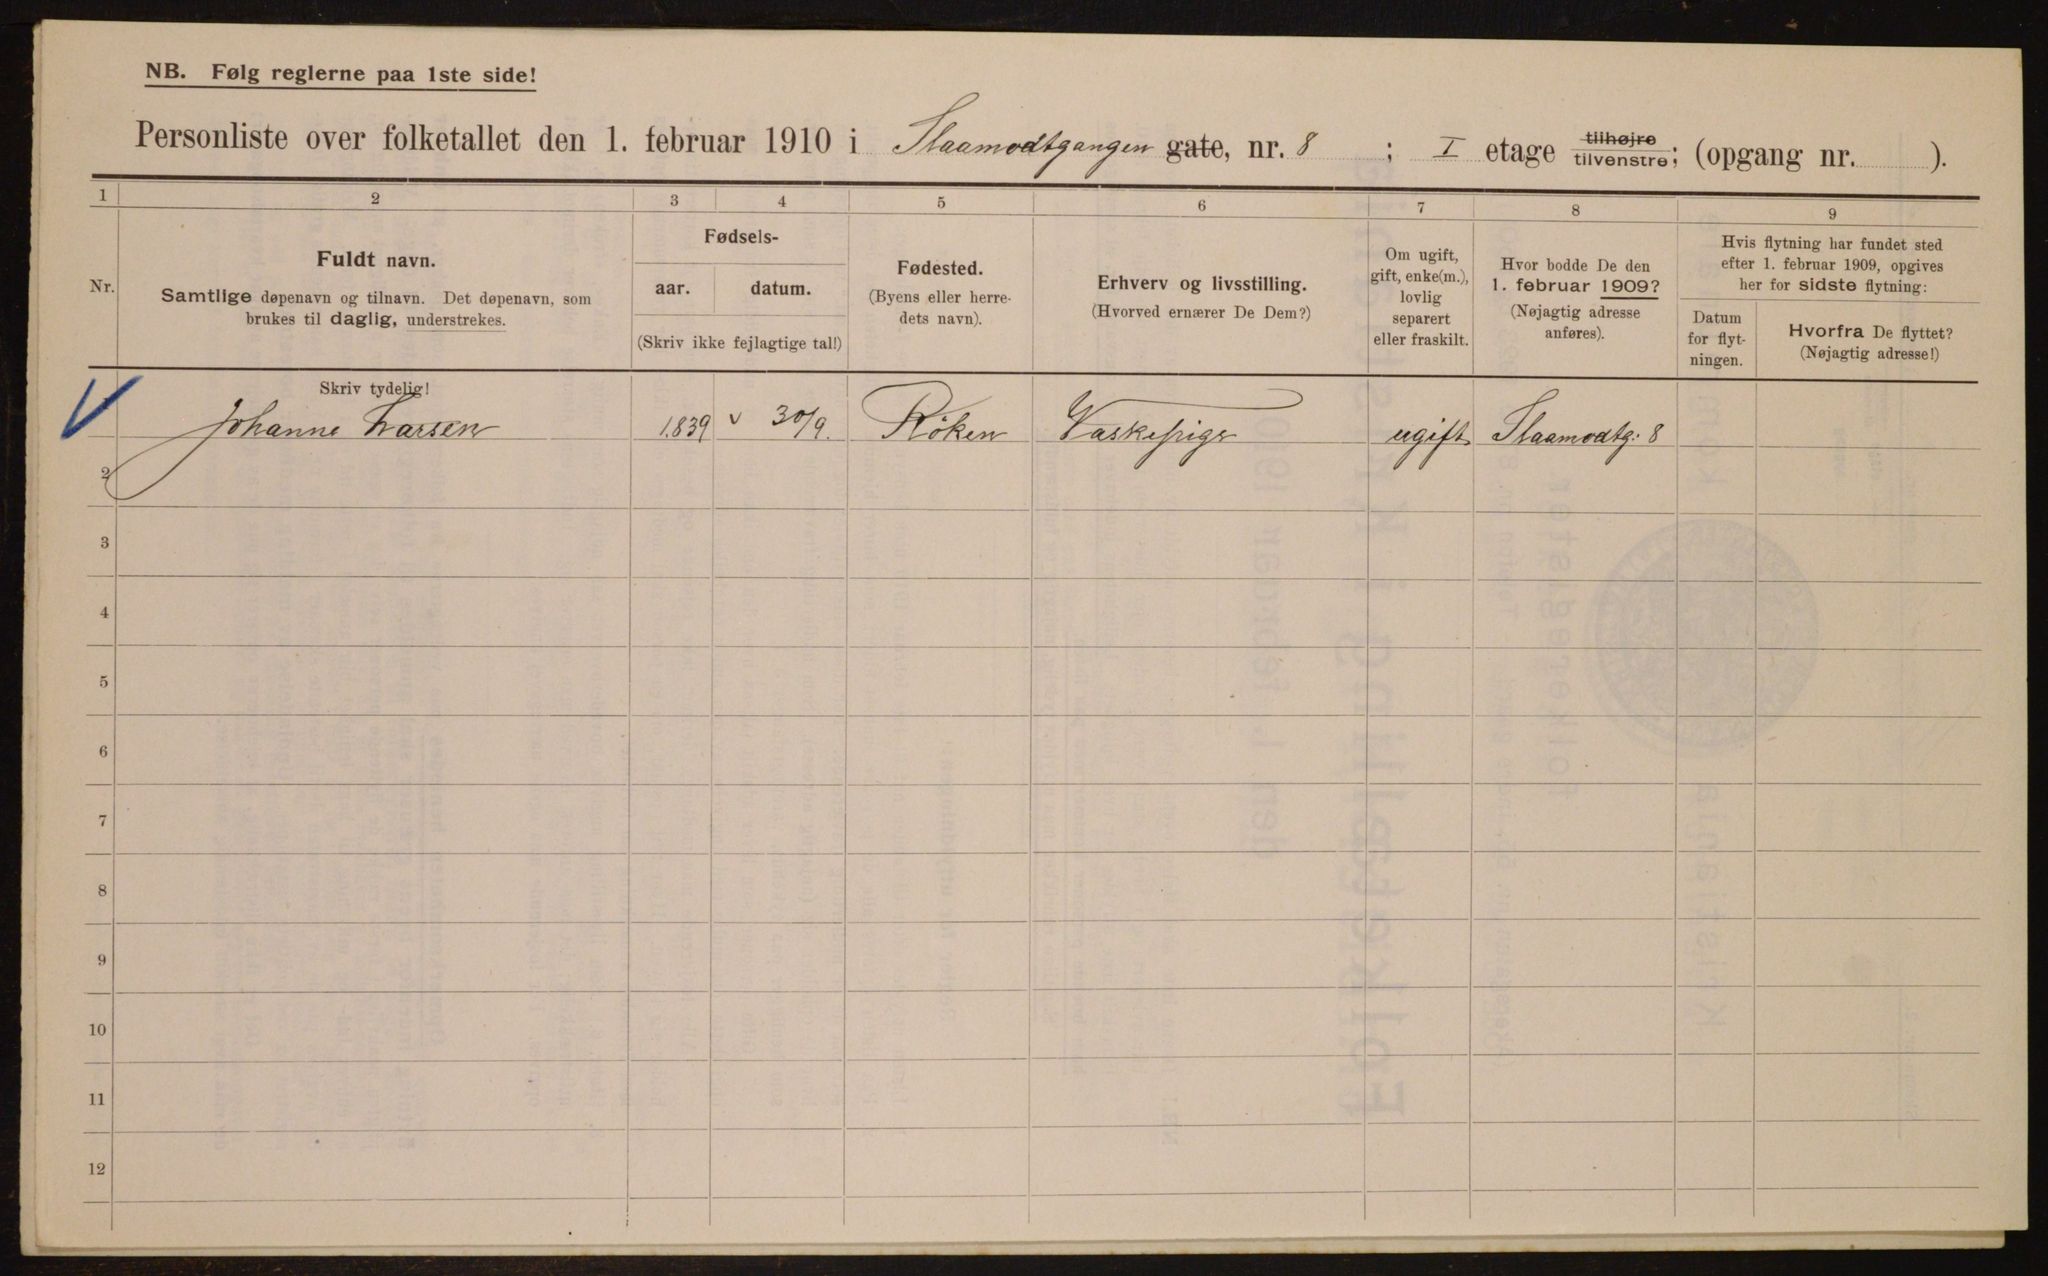 NB. Følg reglerne paa 1ste side!
Personliste over folketallet den 1. februar 1910 i Slaamodtgangen gate, nr. 8 ; I etage tilhøjre tilvenstre; (opgang nr. ).
1 2 3 4 5 6 7 8 9
Nr.
Fuldt navn.
Samtlige døpenavn og tilnavn. Det døpenavn, som
brukes til daglig, understrekes.
Skriv tydelig!
Fødsels-
aar. datum.
(Skriv ikke fejlagtige tal!)
Fødested.
(Byens eller herre-
dets navn).
Erhverv og livsstilling.
(Hvorved ernærer De Dem?)
Om ugift,
gift, enke(m.),
lovlig
separert
eller fraskilt.
Hvor bodde De den
1. februar 1909?
(Nøjagtig adresse
anføres).
Hvis flytning har fundet sted
efter 1. februar 1909, opgives
her for sidste flytning:
Datum
for flyt-
ningen.
Hvorfra De flyttet?
(Nøjagtig adresse!)
Johanne Larsen 1839 v 30/9. Røken Vaskepige ugift Slaamodtg: 8
2
3
4
5
6
7
8
9
10
11
12